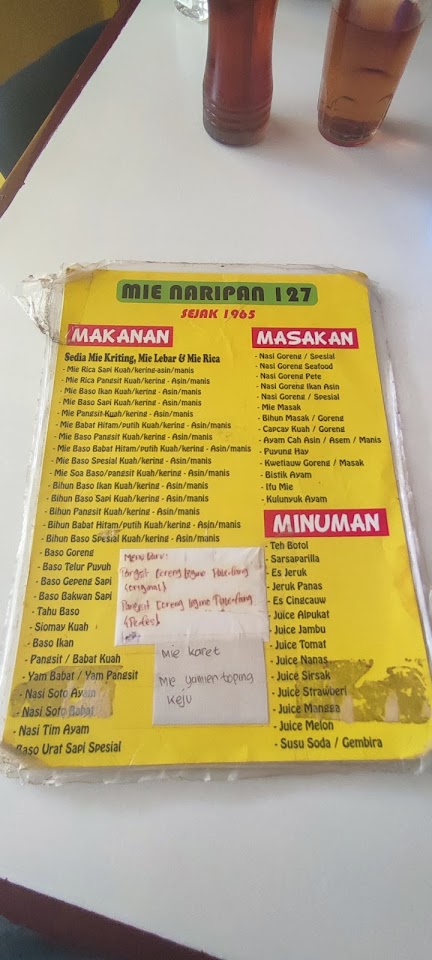 MIE NARIPAN 127
SEJAK 1965
MAKANAN
Sedia Mie Kriting, Mie Lebar & Mie Rica
- Mie Rica Sapi Kuah/kering-asin/manis
- Mie Rica Pangsit Kuah/kering - Asin/manis
- Mie Baso Ikan Kuah/kering - Asin/manis
- Mie Baso Sapi Kuah/kering - Asin/manis
- Mie Pangsit Kuah/kering - Asin/manis
- Mie Babat Hitam/putih Kuah/kering - Asin/manis
- Mie Baso Pangsit Kuah/kering - Asin/manis
- Mie Baso Babat Hitam/putih Kuah/kering - Asin/manis
- Mie Baso Spesial Kuah/kering - Asin/manis
- Mie Soa Baso/pangsit Kuah/kering - Asin/manis
- Bihun Baso Ikan Kuah/kering - Asin/manis
- Bihun Baso Sapi Kuah/kering - Asin/manis
- Bihun Pangsit Kuah/kering - Asin/manis
- Bihun Babat Hitam/putih Kuah/kering - Asin/manis
- Bihun Baso Spesial Kuah/kering - Asin/manis
- Baso Goreng
- Baso Telur Puyuh
- Baso Gepeng Sapi
- Baso Bakwan Sapi
- Tahu Baso
- Siomay Kuah
- Baso Ikan
- Pangsit / Babat Kuah
- Yam Babat / Yam Pangsit
- Nasi Soto Ayam
- Nasi Soto Babat
- Nasi Tim Ayam
Baso Urat Sapi Spesial
Menu Baru:
Pangsit Goreng
(original)
Pangsit Goreng
Mie karet
Mie yamien toping
keju
MASAKAN
- Nasi Goreng / Spesial
- Nasi Goreng Seafood
- Nasi Goreng Pete
- Nasi Goreng Ikan Asin
- Nasi Goreng / Spesial
- Mie Masak
- Bihun Masak / Goreng
- Capcay Kuah / Goreng
- Ayam Cah Asin / Asem / Manis
- Puyung Hay
- Kwetiauw Goreng / Masak
- Bistik Ayam
- Ifu Mie
- Kulunyuk Ayam
MINUMAN
- Teh Botol
- Sarsaparilla
- Es Jeruk
- Jeruk Panas
- Es Cingcauw
- Juice Alpukat
- Juice Jambu
- Juice Tomat
- Juice Nanas
- Juice Sirsak
- Juice Strawberi
- Juice Mangga
- Juice Melon
- Susu Soda / Gembira